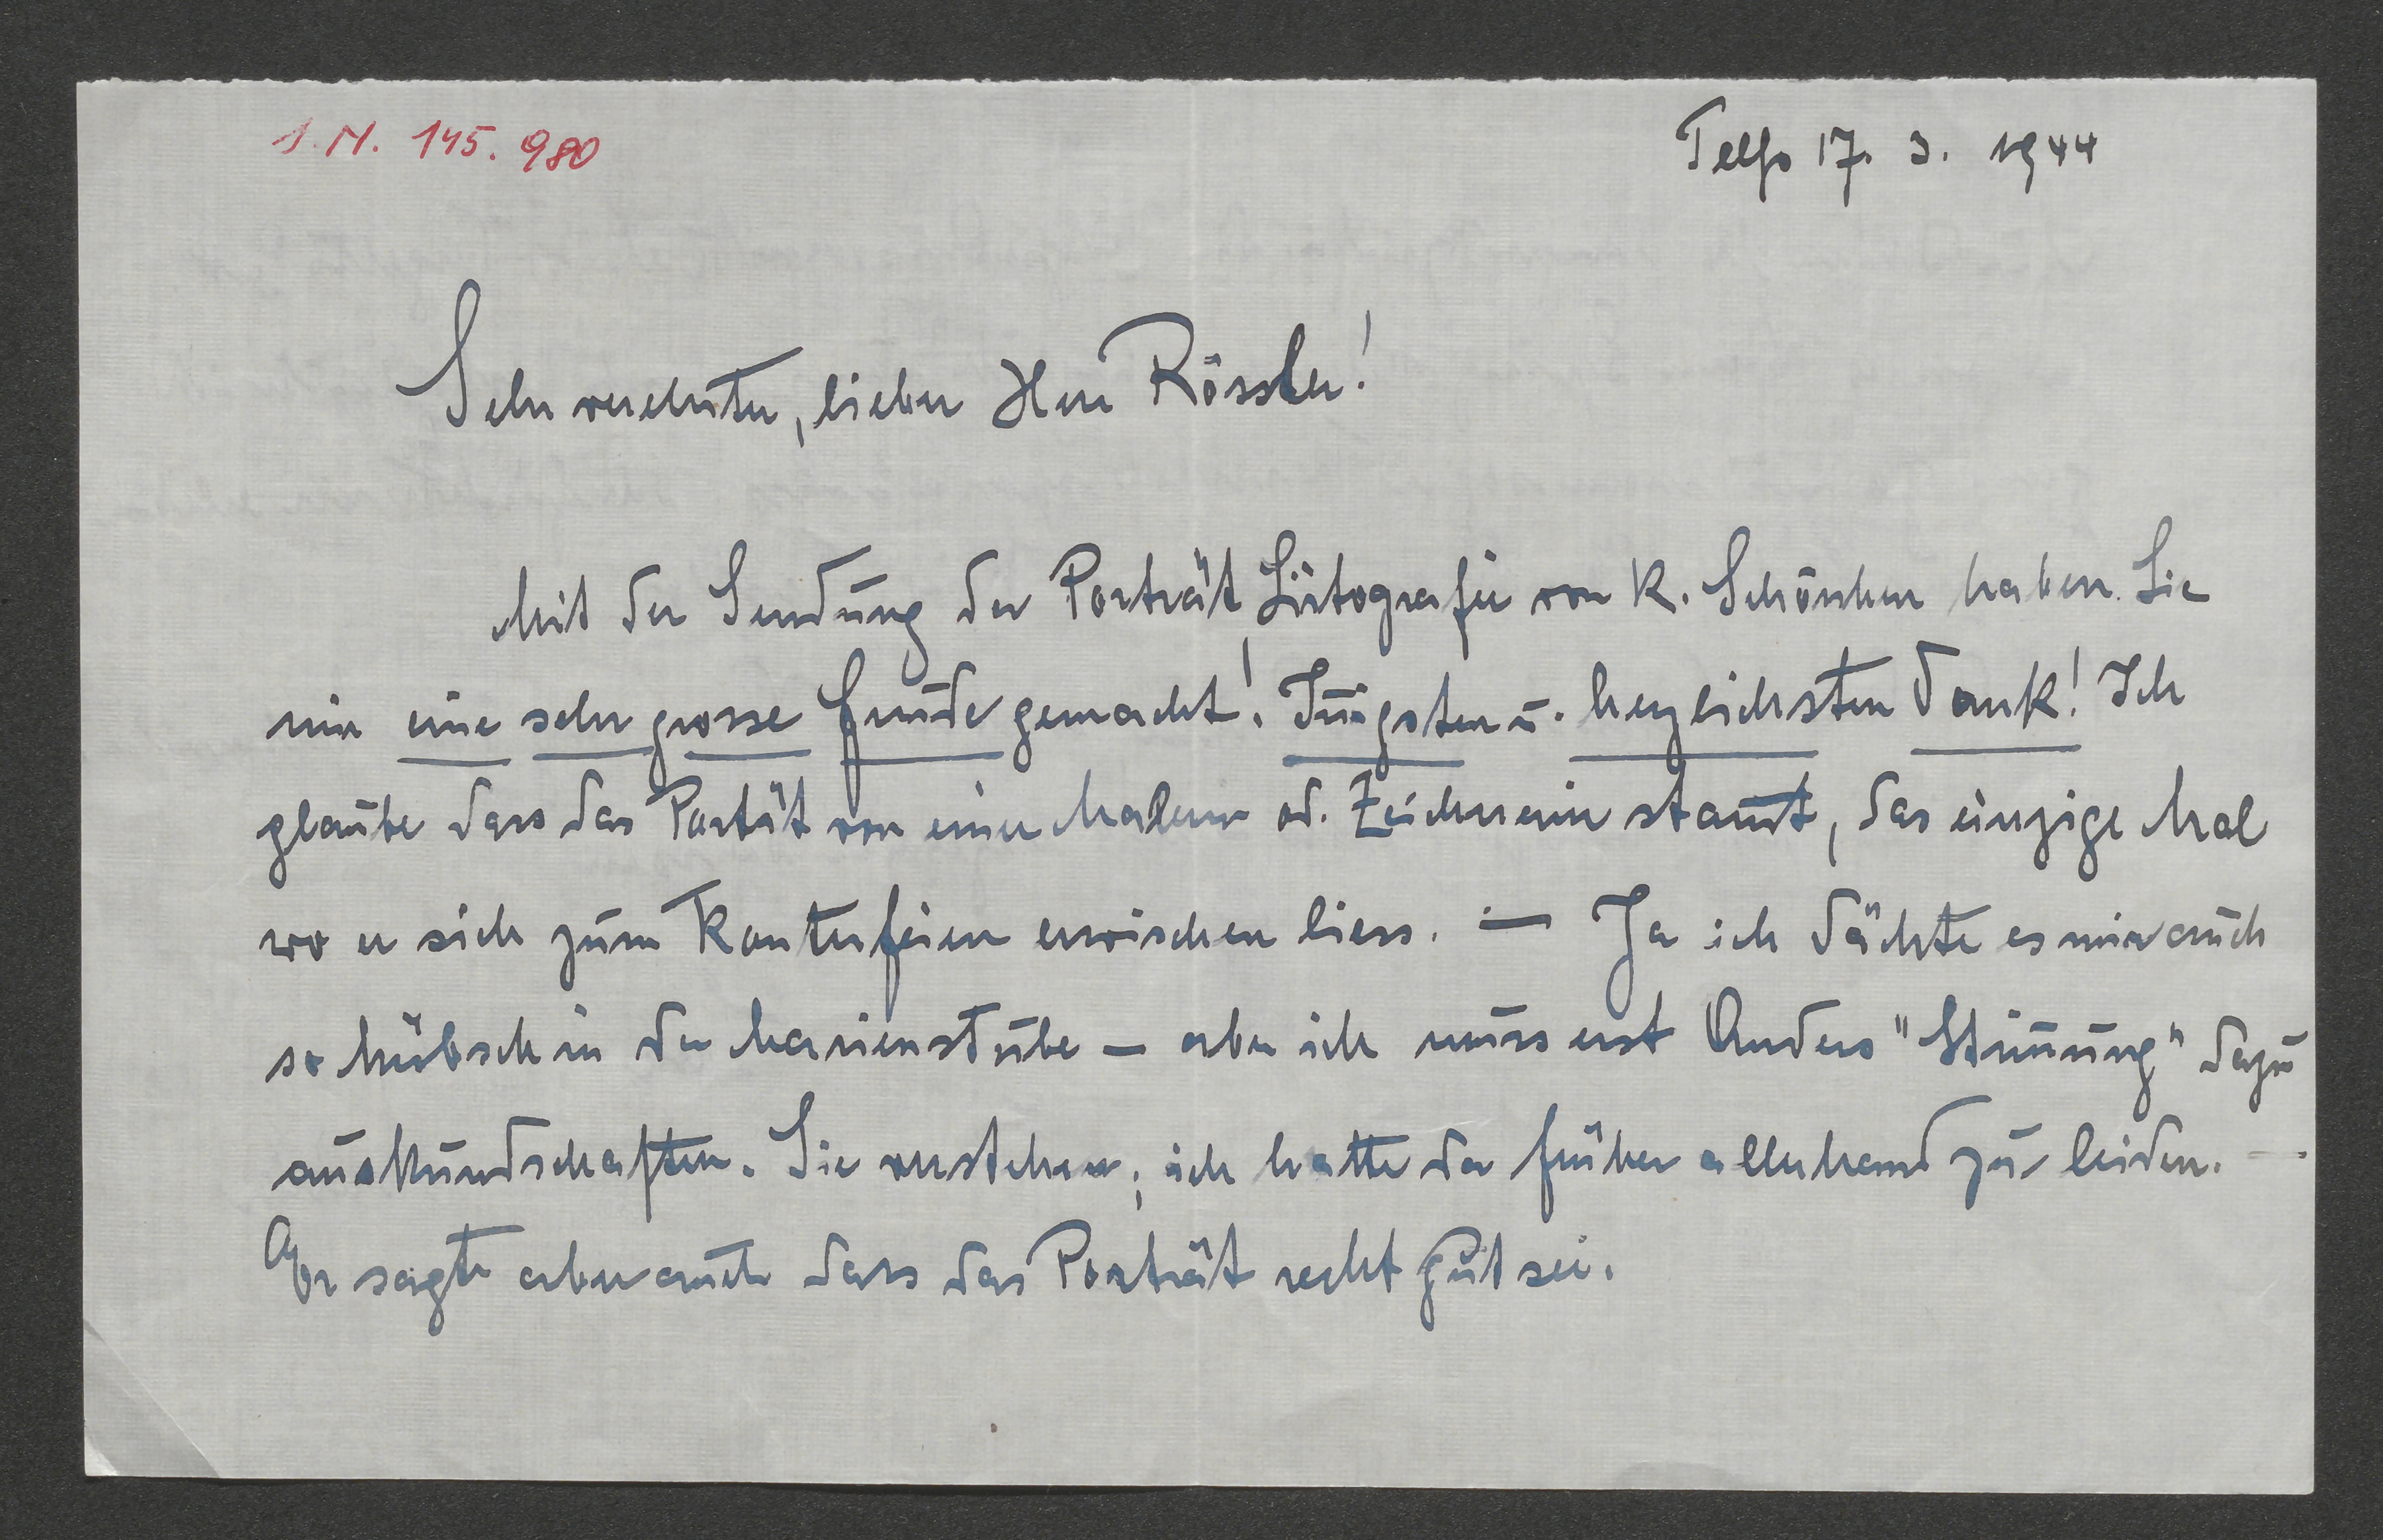 I.N. 145.980
Telfs 17. 3. 1944
Sehr verehrter, lieber Herr Rössler!
Mit der Sendung der Porträt Litografie von K. Schönherr haben Sie
mir eine sehr grosse Freude gemacht! Innigsten u. herzlichsten Dank! Ich
glaube dass das Porträt von einer Malerin od. Zeichnerin stam̄t, das einzige Mal
wo er sich zum Konterfeien erwischen liess. — Ja ich dächte es mir auch
so hübsch in der Marienstube – aber ich muss erst Anders "Stim̄ung" dazu
auskundschaften. Sie verstehen, ich hatte da früher allerhand zu leiden. —
Er sagte aber auch dass das Porträt recht gut sei.